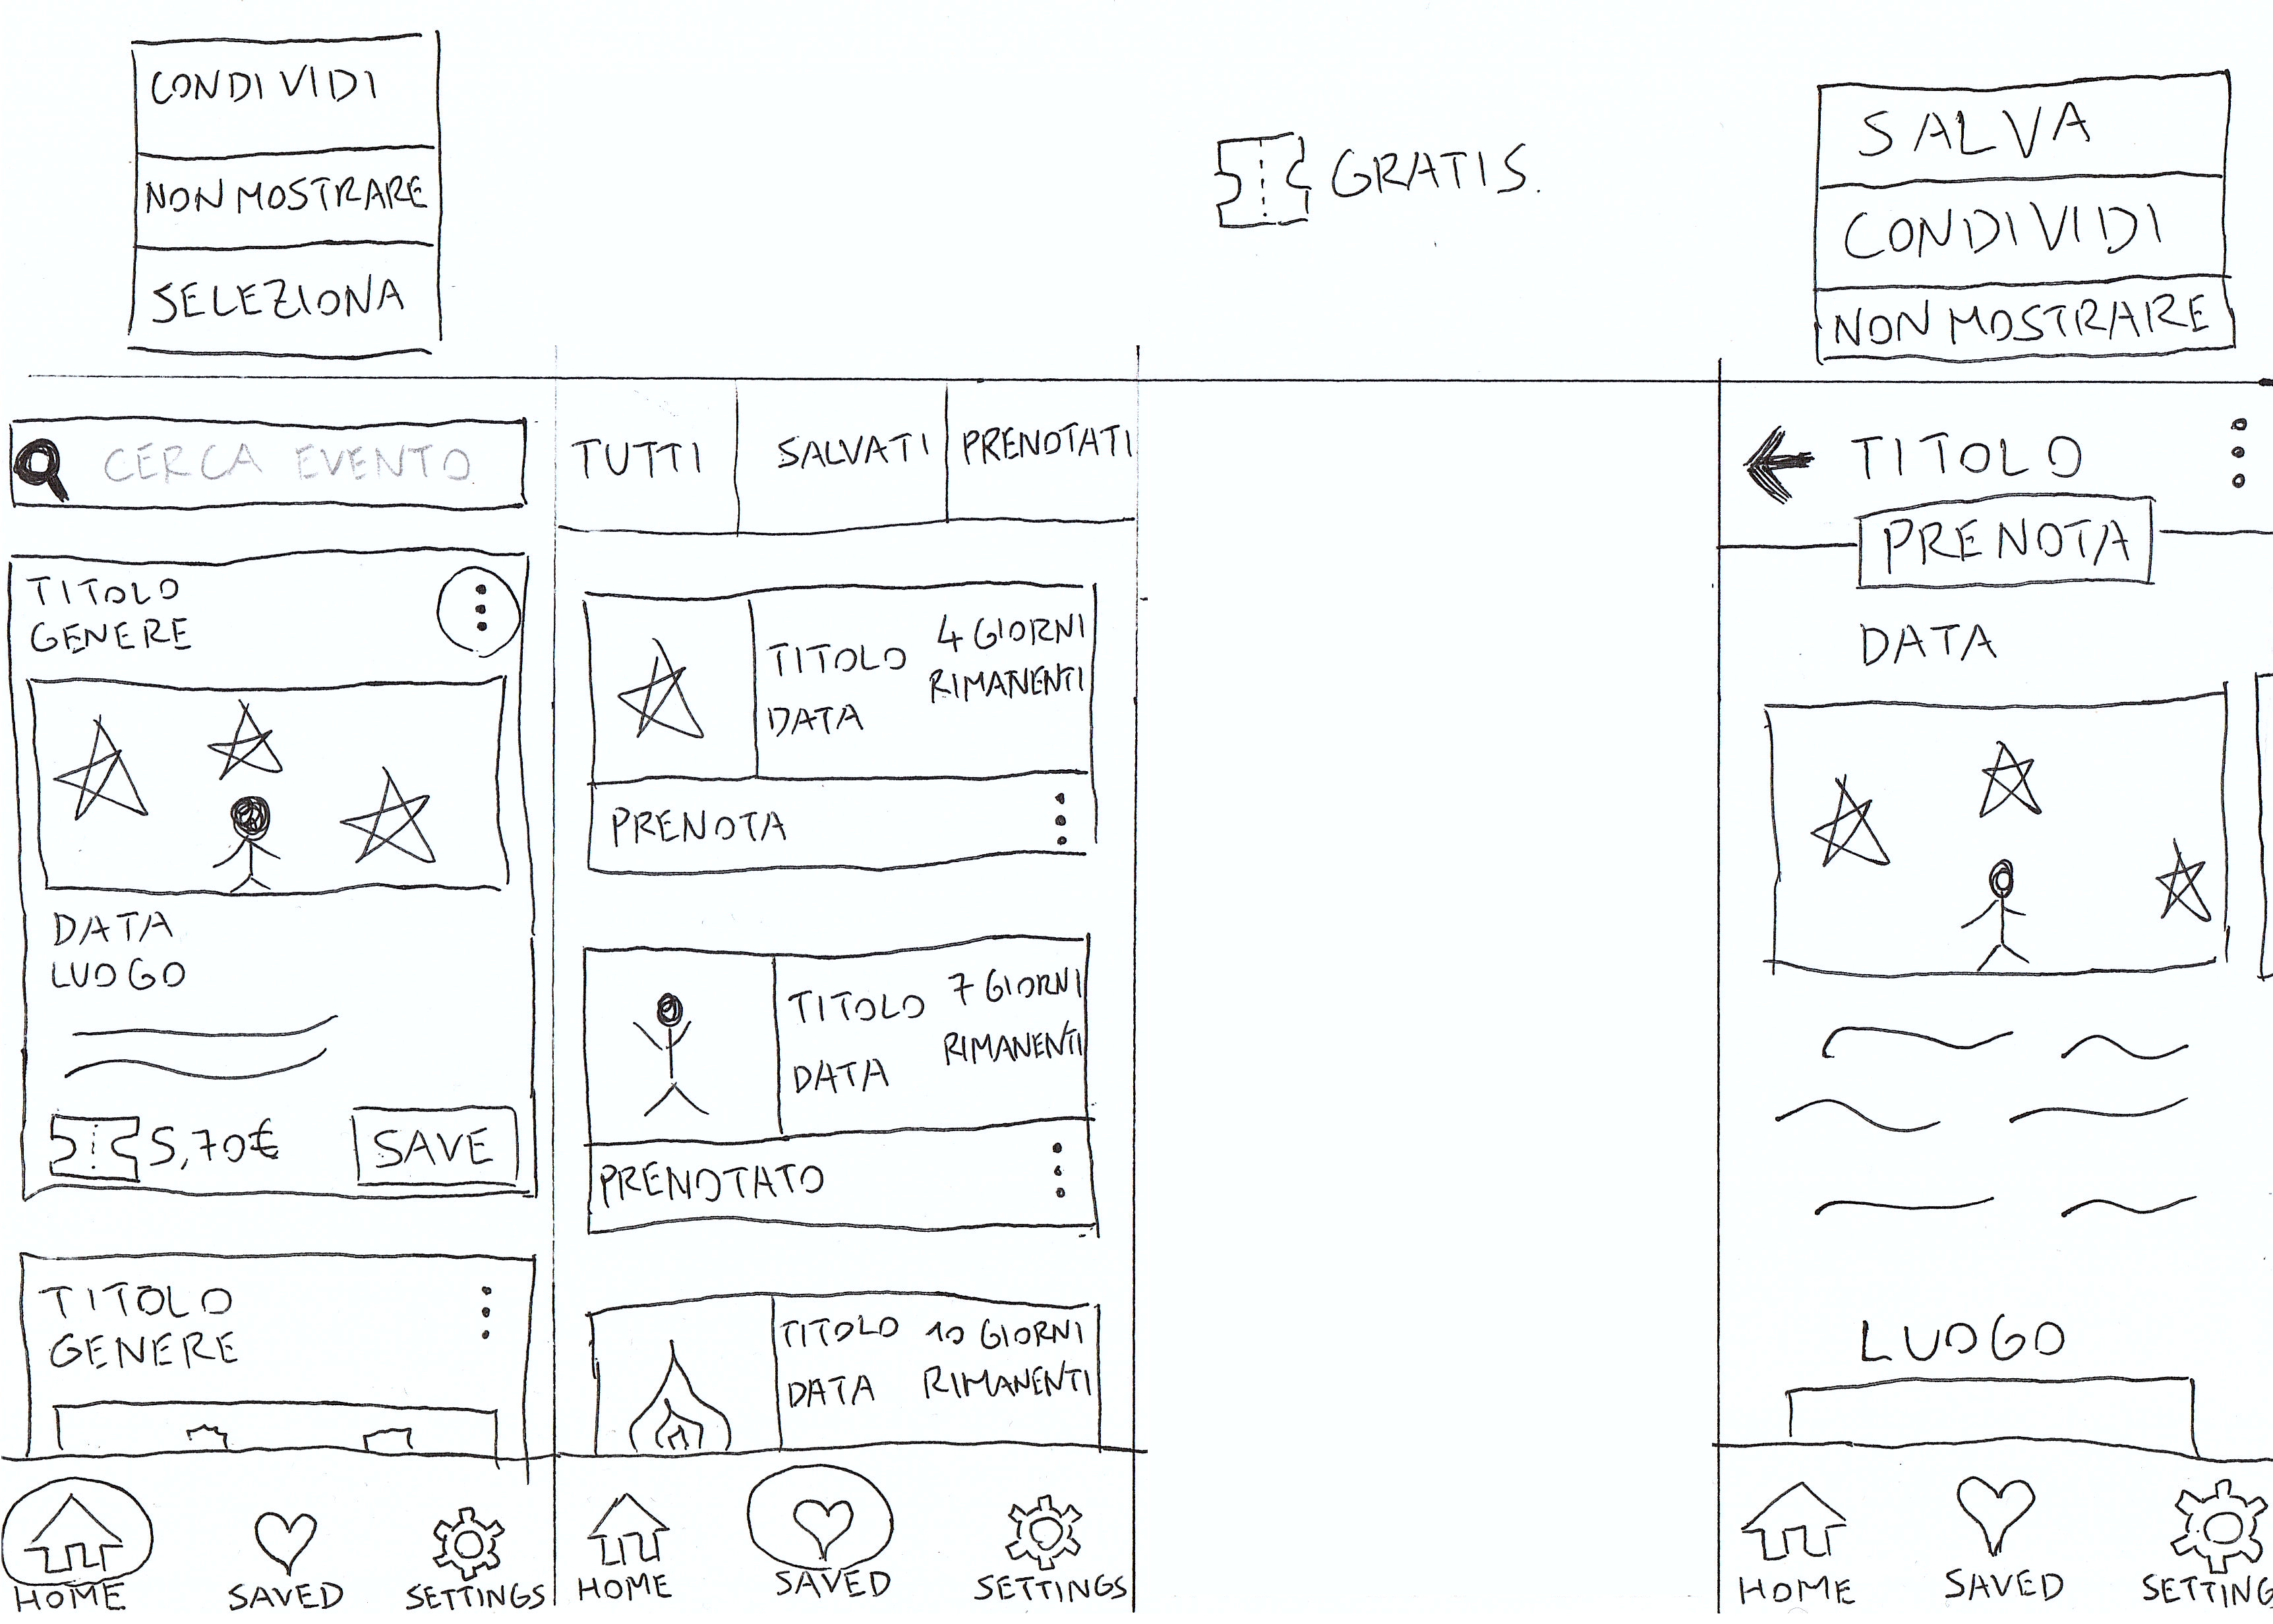 CONDIVIDI
NON MOSTRARE
SELEZIONA
GRATIS.
SALVA
CONDIVIDI
NON MOSTRARE
CERCA EVENTO
TITOLO
GENERE
DATA
LUOGO
5,70€
SAVE
TITOLO
GENERE
HOME
SAVED
SETTINGS
TUTTI
SALVATI
PRENOTATI
TITOLO
DATA
4 GIORNI
RIMANENTI
PRENOTA
TITOLO
DATA
7 GIORNI
RIMANENTI
PRENOTATO
TITOLO
DATA
10 GIORNI
RIMANENTI
HOME
SAVED
SETTINGS
TITOLO
PRENOTA
DATA
LUOGO
HOME
SAVED
SETTING